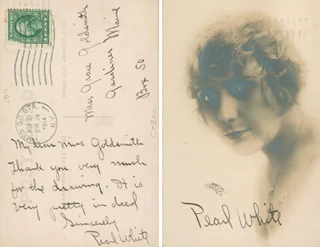 Miss Grace Goldsmith
Gardiner Maine
Box 50
N.Y.
My dear Miss Goldsmith
Thank you very much
for the drawing. It is
very pretty in deed
Sincerely
Pearl White
Pearl White